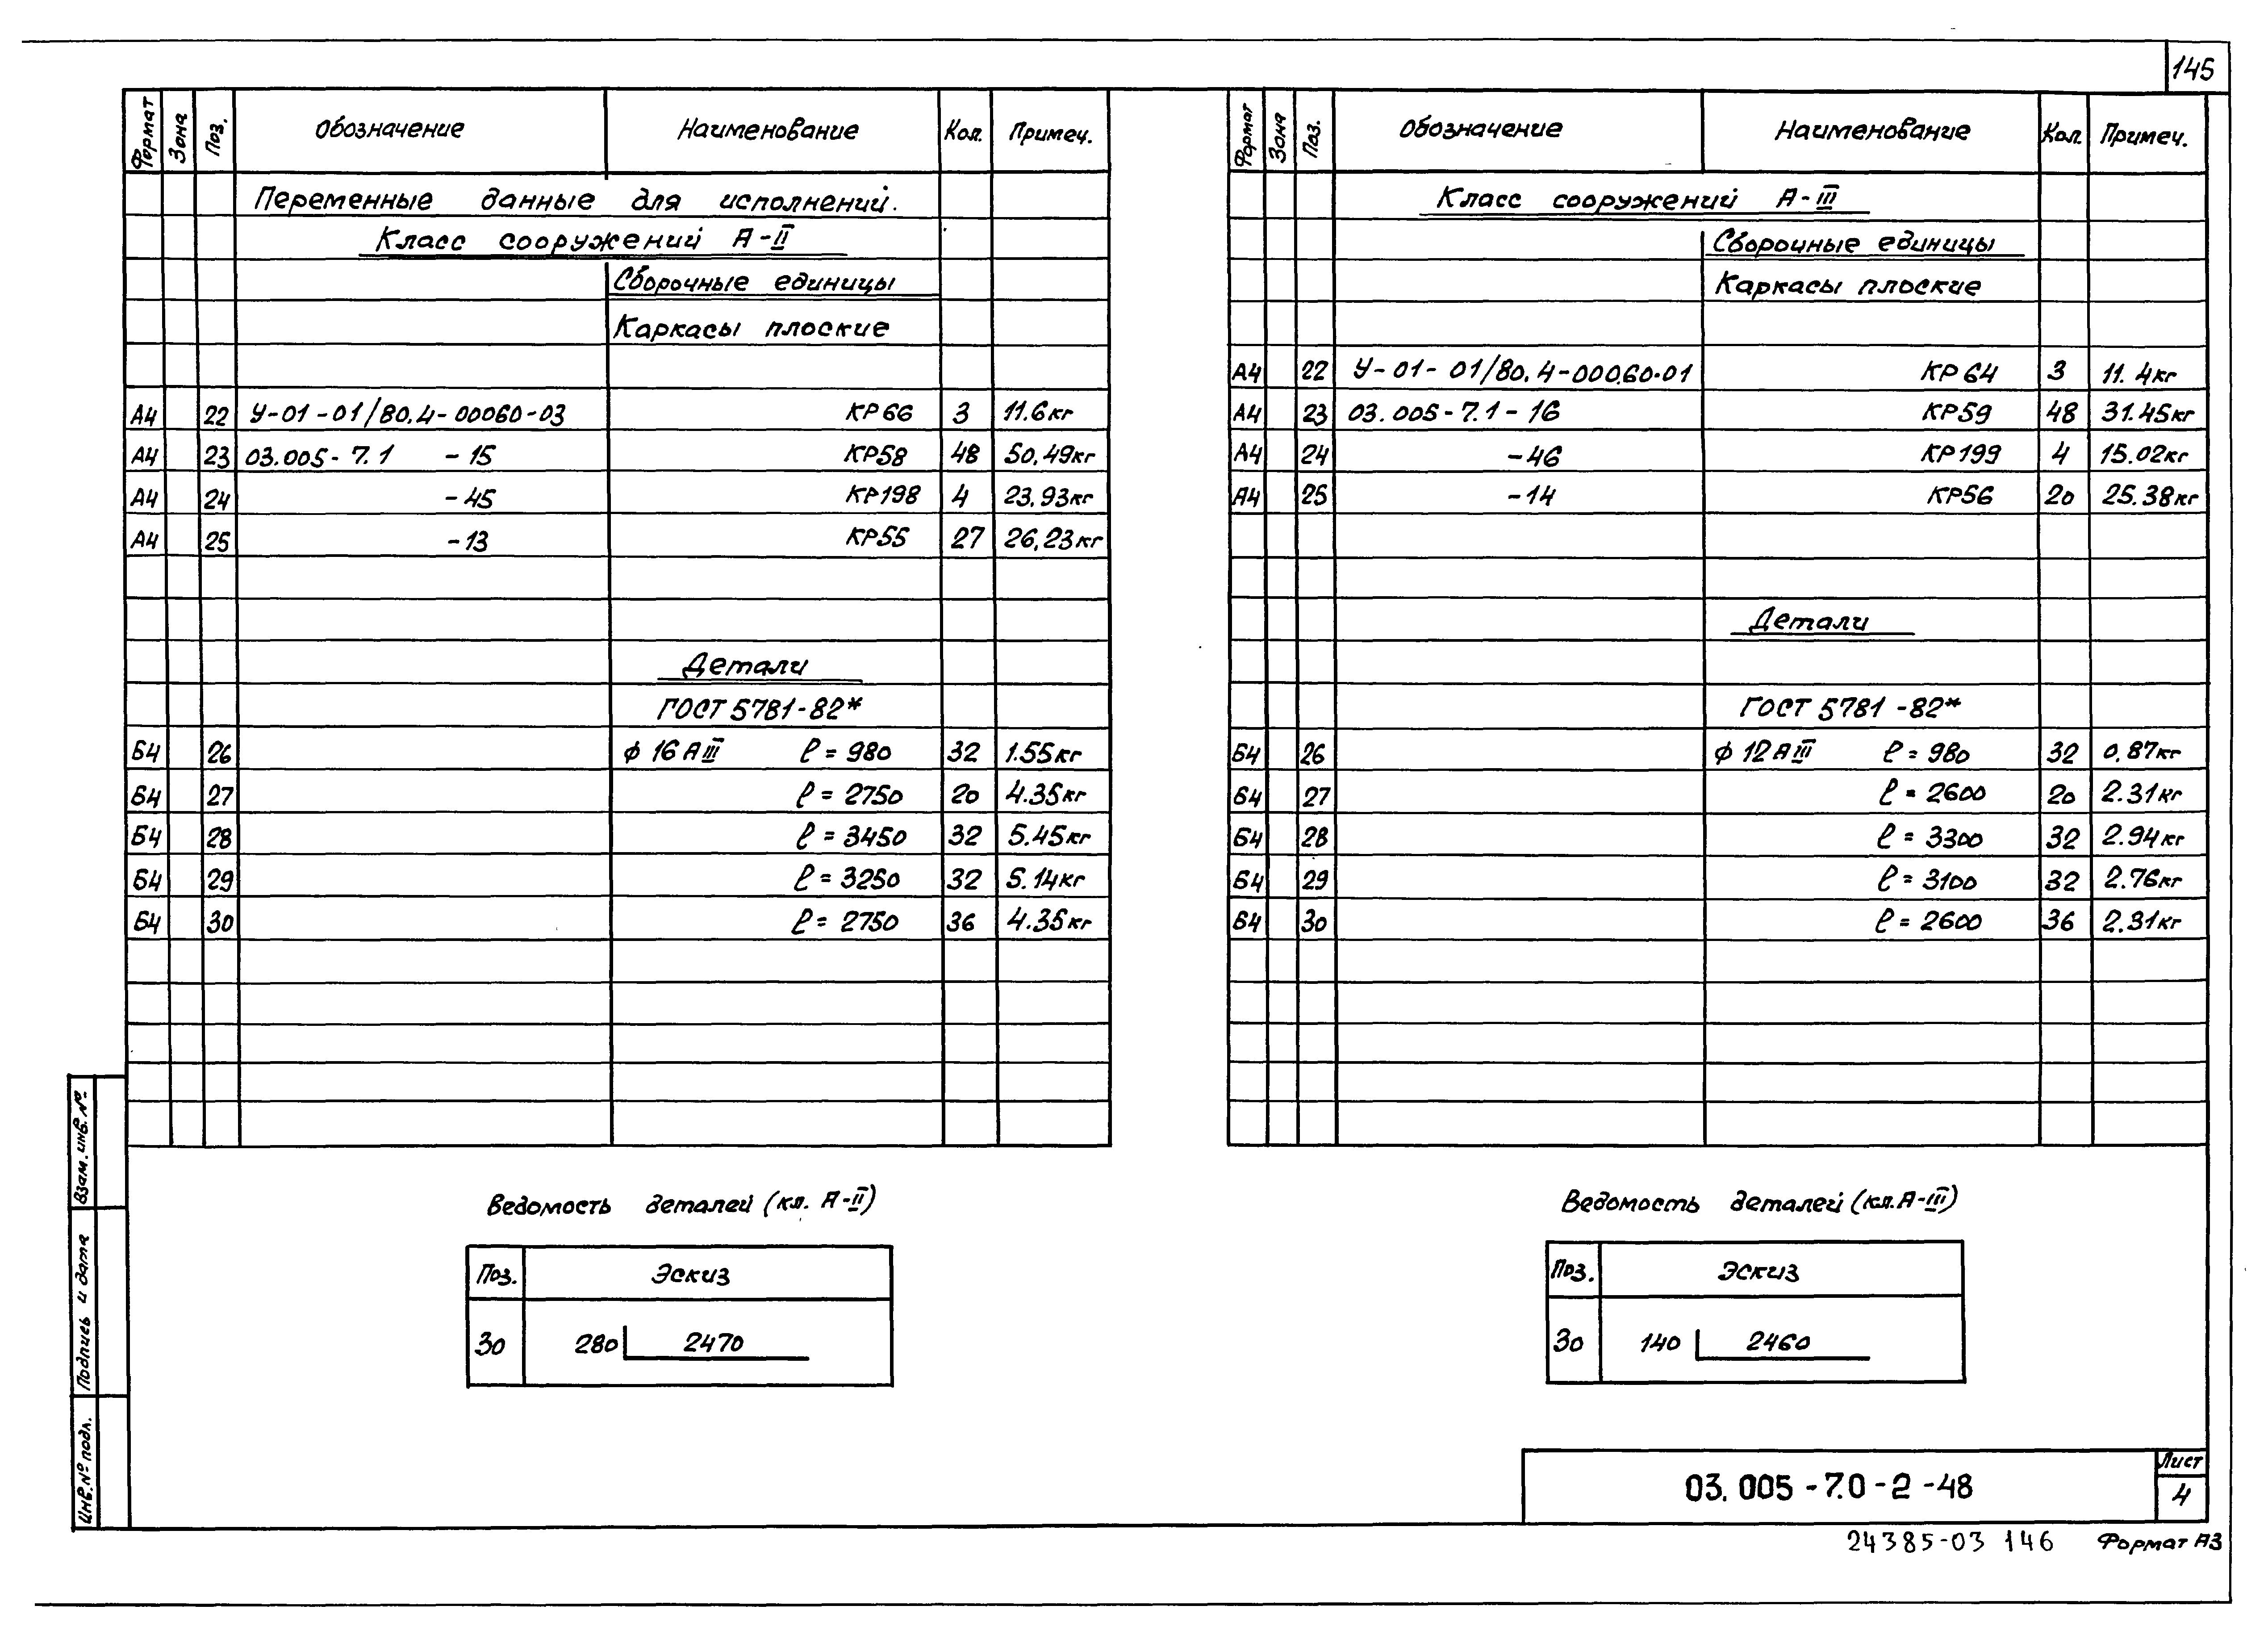 145
Формат Зона Поз. Обозначение Наименование Кол. Примеч.
Переменные данные для исполнений.
Класс сооружений А-II
Сборочные единицы
Каркасы плоские
А4 22 У-01-01/80.4-00060-03 КР66 3 11.6кг
А4 23 03.005-7.1 -15 КР58 48 50.49кг
А4 24 -45 КР198 4 23.93кг
А4 25 -13 КР55 27 26.23кг
Детали
ГОСТ 5781-82*
Б4 26 ф 16 АIII ℓ = 980 32 1.55кг
Б4 27 ℓ = 2750 20 4.35кг
Б4 28 ℓ = 3450 32 5.45кг
Б4 29 ℓ = 3250 32 5.14кг
Б4 30 ℓ = 2750 36 4.35кг
Ведомость деталей (кл. А-II)
Поз. Эскиз
30 280 2470
Формат Зона Поз. Обозначение Наименование Кол. Примеч.
Класс сооружений А-III
Сборочные единицы
Каркасы плоские
А4 22 У-01-01/80.4-00060-01 КР64 3 11.4кг
А4 23 03.005-7.1-16 КР59 48 31.45кг
А4 24 -46 КР199 4 15.02кг
А4 25 -14 КР56 20 25.38кг
Детали
ГОСТ 5781-82*
Б4 26 ф 12 АIII ℓ = 980 32 0.87кг
Б4 27 ℓ = 2600 20 2.31кг
Б4 28 ℓ = 3300 32 2.94кг
Б4 29 ℓ = 3100 32 2.76кг
Б4 30 ℓ = 2600 36 2.31кг
Ведомость деталей (кл. А-III)
Поз. Эскиз
30 140 2460
Взам. инв. №
Подпись и дата
Инв. № подл.
03.005-7.0-2-48
Лист
4
24385-03 146 Формат А3